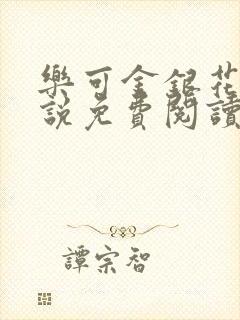 樂可金銀花
說免費閱讀
譚宗智